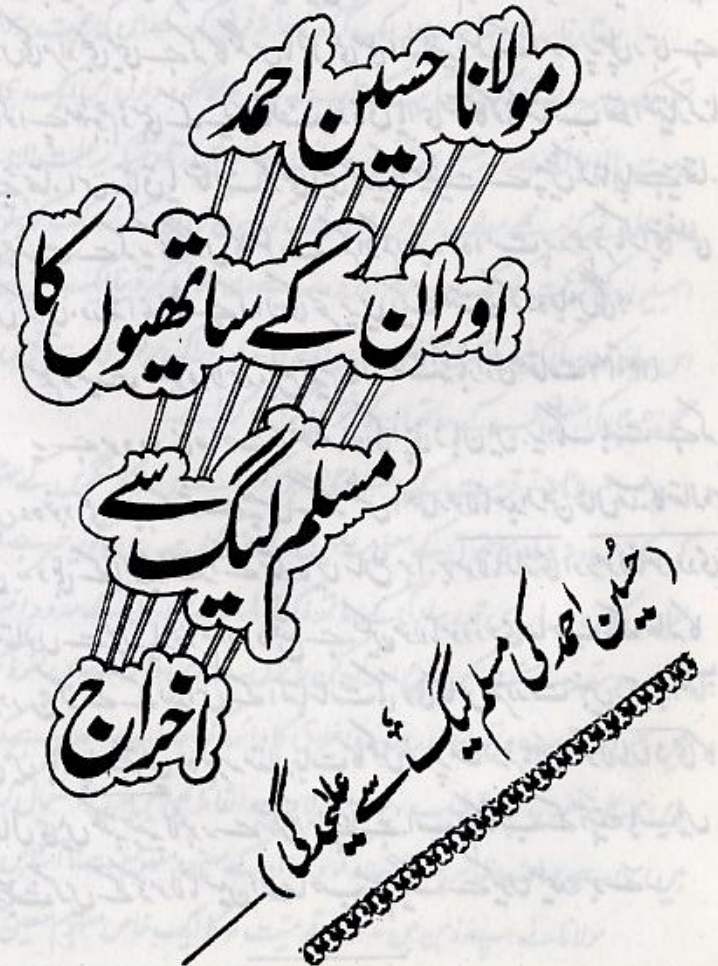 مولانا حسین احمد
اور ان کے ساتھیوں کا
مسلم لیگ سے
اخراج
(حُسین احمد کی مسلم لیگ سے علیٰحدگی)